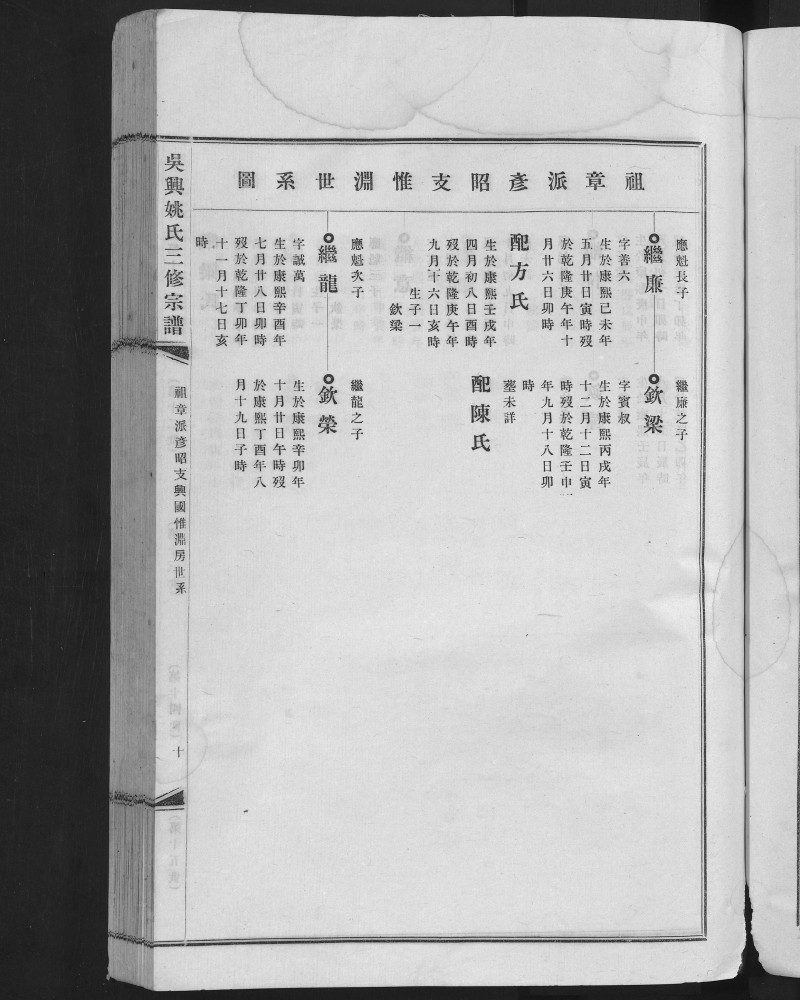 祖章派彥昭支惟淵世系圖
應魁長子
繼廉
字善六
生於康熙己未年
五月廿日寅時歿
於乾隆庚午年十
月廿六日卯時
配方氏
生於康熙壬戌年
四月初八日酉時
歿於乾隆庚午年
九月十六日亥時
生子一
欽梁
繼廉之子
欽梁
字賓叔
生於康熙丙戌年
十二月十二日寅
時歿於乾隆壬申
年九月十八日卯
時
墓未詳
配陳氏
應魁次子
繼龍
字誠萬
生於康熙辛酉年
七月廿八日卯時
歿於乾隆丁卯年
十一月十七日亥
時
繼龍之子
欽榮
生於康熙辛卯年
十月廿日午時歿
於康熙丁酉年八
月十九日子時
吳興姚氏三修宗譜
祖章派彥昭支興國惟淵房世系
十